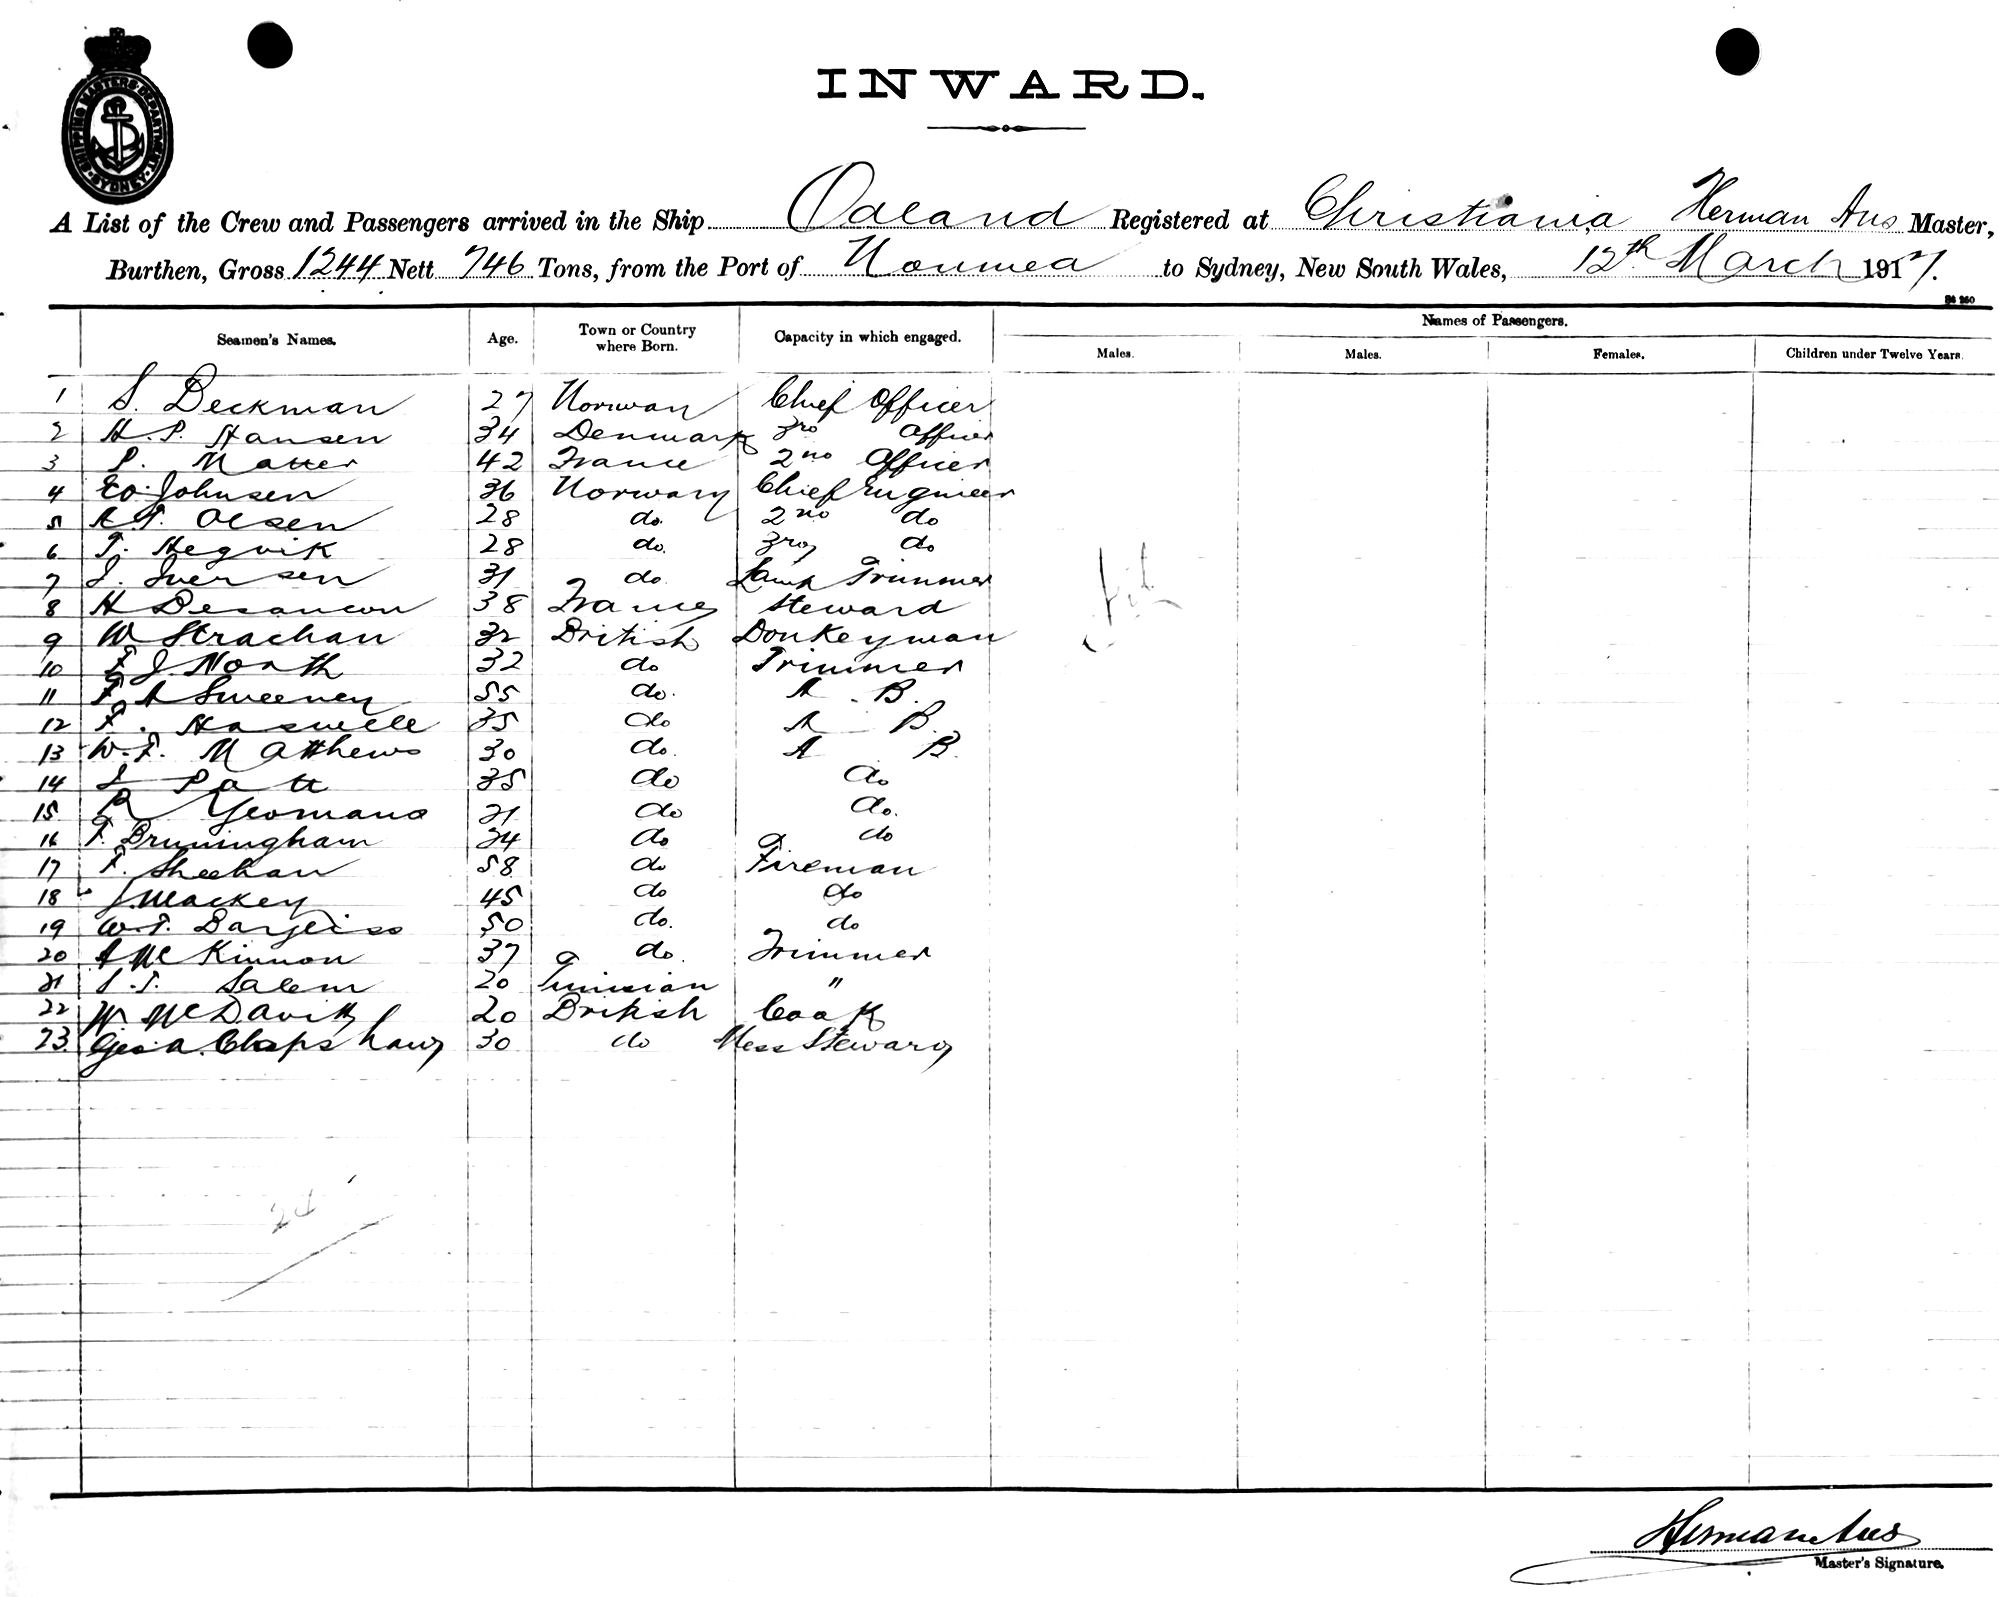 SHIPPING MASTERS DEPARTMENT SYDNEY
INWARD.
A List of the Crew and Passengers arrived in the Ship Odland Registered at Christiania Herman Aus Master,
Burthen, Gross 1244 Nett 746 Tons, from the Port of Noumea to Sydney, New South Wales, 12th March 1917.
Names of Passengers.
Seamen's Names. Age. Town or Country where Born. Capacity in which engaged. Males. Males. Females. Children under Twelve Years.
1 S. Beckman 27 Norway Chief Officer
2 H. P. Hansen 34 Denmark 3rd Officer
3 P. Matter 42 France 2nd Officer
4 Ed. Johnsen 36 Norway Chief Engineer
5 A. T. Olsen 28 do. 2nd do
6 T. Hegvik 28 do. 3rd do
7 I. Iversen 31 do. Lamp Trimmer
8 H Besancon 38 France Steward
9 W Strachan 32 British Donkeyman
10 F J North 32 do Trimmer
11 F A Sweeney 55 do. A. B.
12 F. Haswell 35 do A B.
13 W. F. Matthews 30 do. A B.
14 Patt 35 do do
15 R Yeomans 21 do do.
16 F. Bruningham 24 do do
17 F. Sheehan 58 do Fireman
18 J Mackey 45 do do
19 W. T. 50 do. do
20 A McKinnon 37 do. Trimmer
21 Salem 20 Tunisian "
22 W McDavitt 20 British Cook
23. Geo. A. Clapshaw 30 do Mess Steward
Nil
24
Herman Aus
Master's Signature.